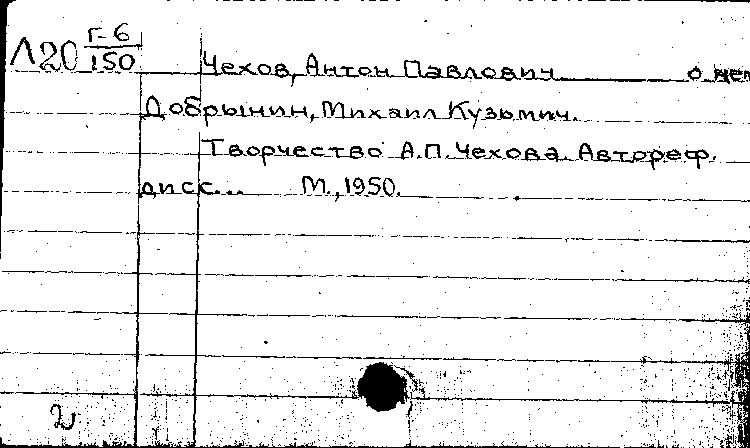 Л20 Г-6/150
Чехов, Антон Павлович о нем
Добрынин, Михаил Кузьмич.
Творчество А.П. Чехова. Автореф.
дисс... М., 1950.